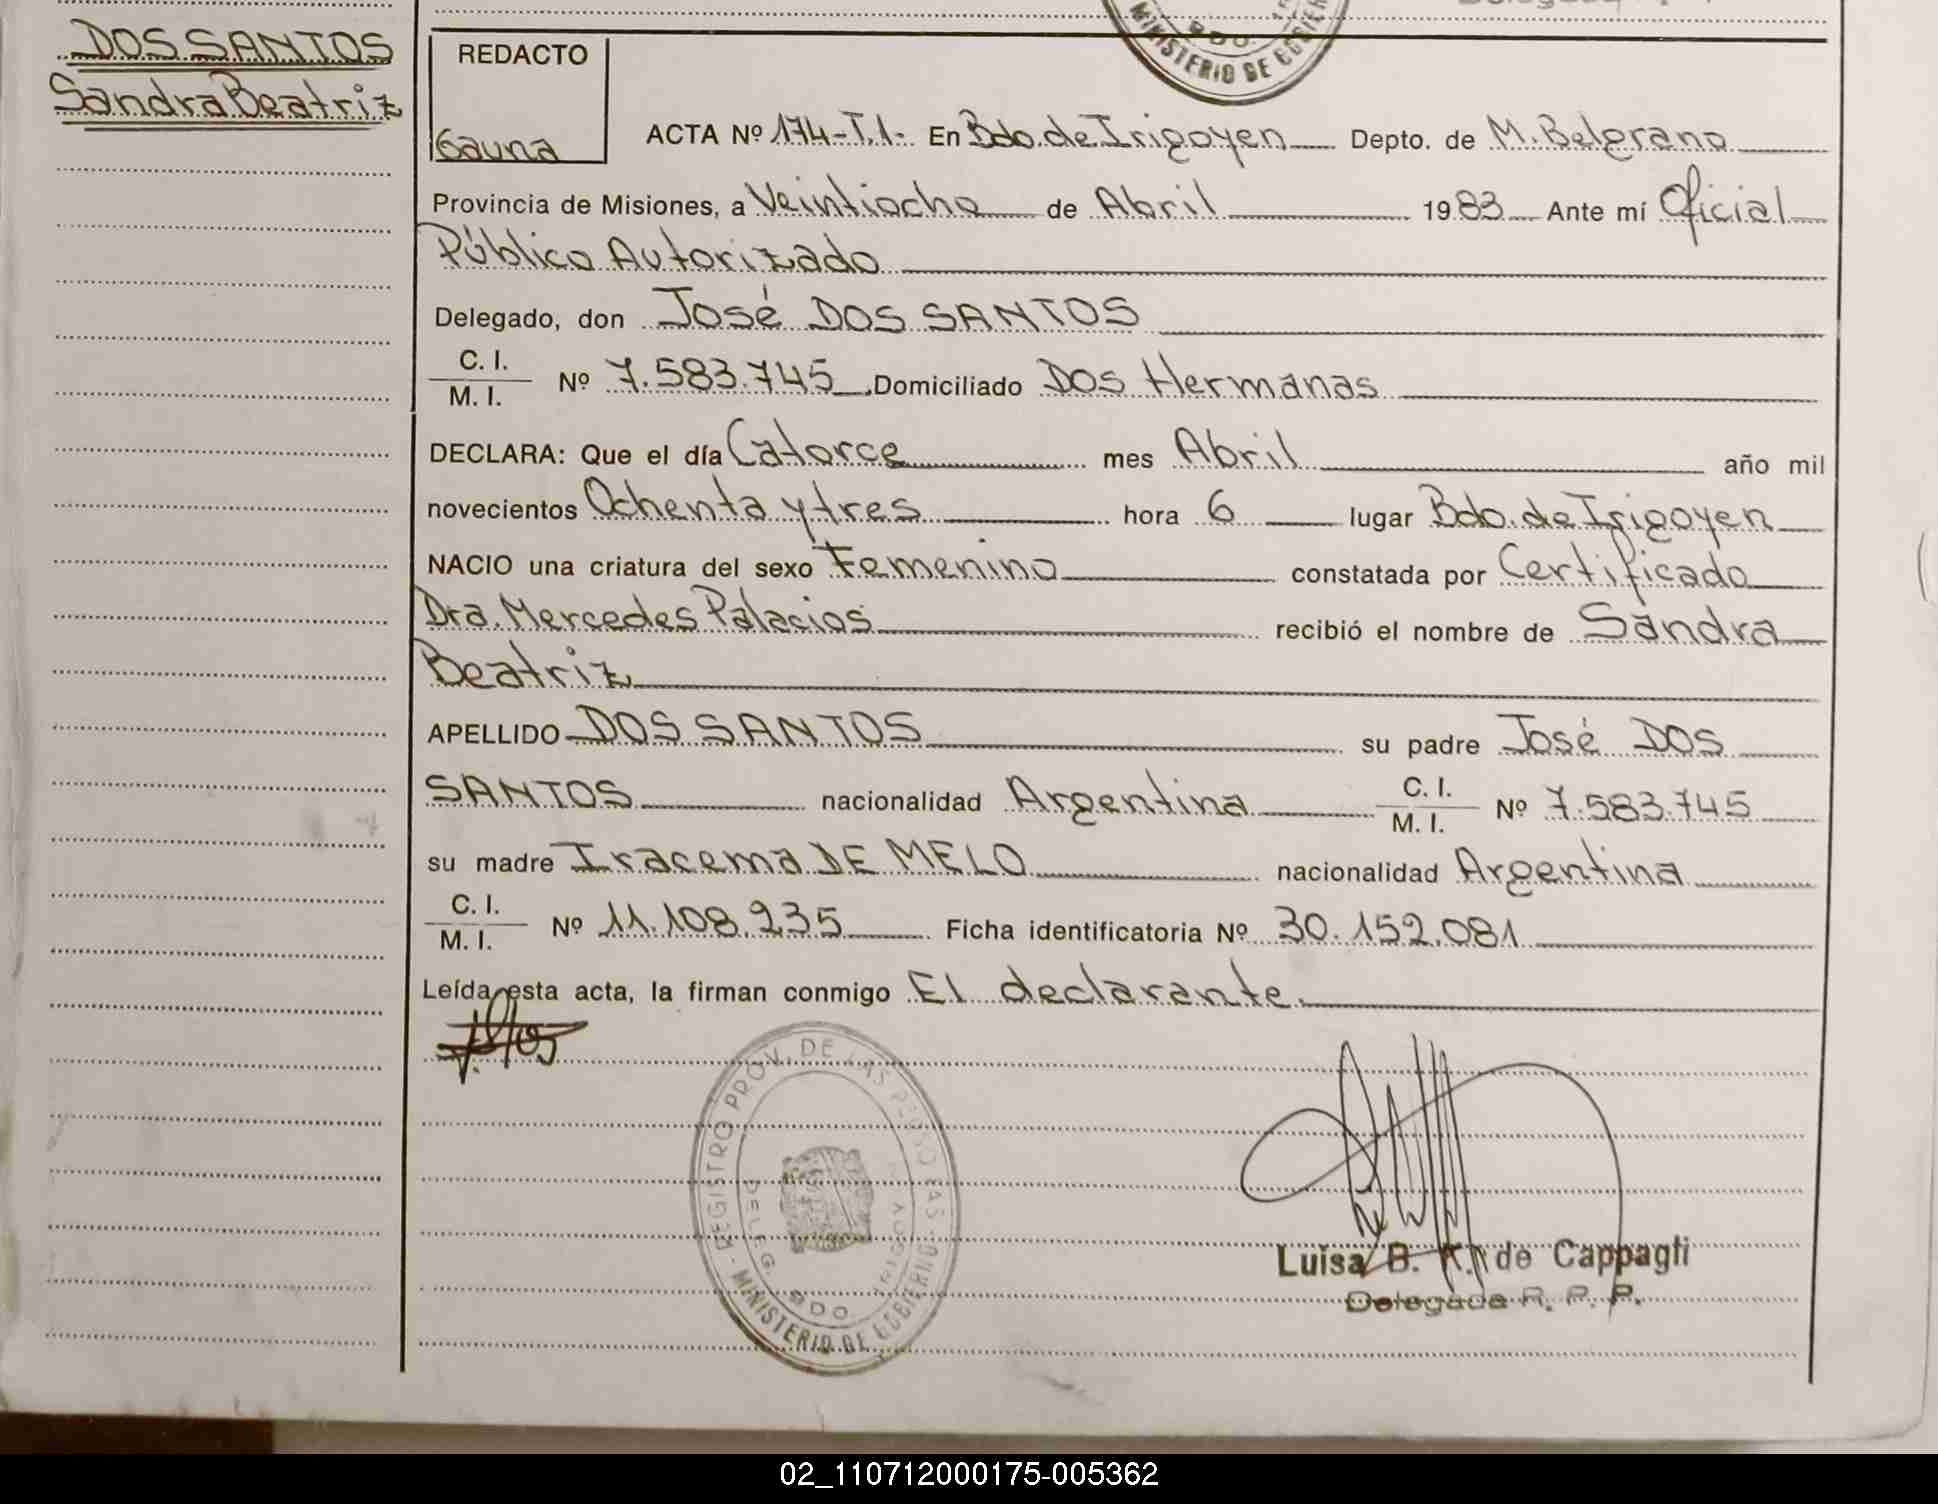 DOS SANTOS
Sandra Beatriz
REDACTO
Gauna
MINISTERIO DE GOBIERNO
BDO.
ACTA Nº 174-T.1- En Bdo. de Irigoyen Depto. de M. Belgrano
Provincia de Misiones, a Veintiocho de Abril 1983 Ante mí Oficial
Público Autorizado
Delegado, don José DOS SANTOS
C. I.
M. I. Nº 7.583.745, Domiciliado Dos Hermanas
DECLARA: Que el día Catorce mes Abril año mil
novecientos Ochenta y tres hora 6 lugar Bdo. de Irigoyen
NACIO una criatura del sexo Femenino constatada por Certificado
Dra. Mercedes Palacios recibió el nombre de Sandra
Beatriz
APELLIDO DOS SANTOS su padre José DOS
SANTOS nacionalidad Argentina C. I. M. I. Nº 7.583.745
su madre Iracema DE MELO nacionalidad Argentina
C. I.
M. I. Nº 11.108.235 Ficha identificatoria Nº 30.152.081
Leída esta acta, la firman conmigo El declarante.
REGISTRO PROV. DE LAS PERSONAS - MINISTERIO DE GOBIERNO -
DELEG. BDO. IRIGOYEN
Luisa B. K. de Cappagli
Delegada R. P. P.
02_110712000175-005362